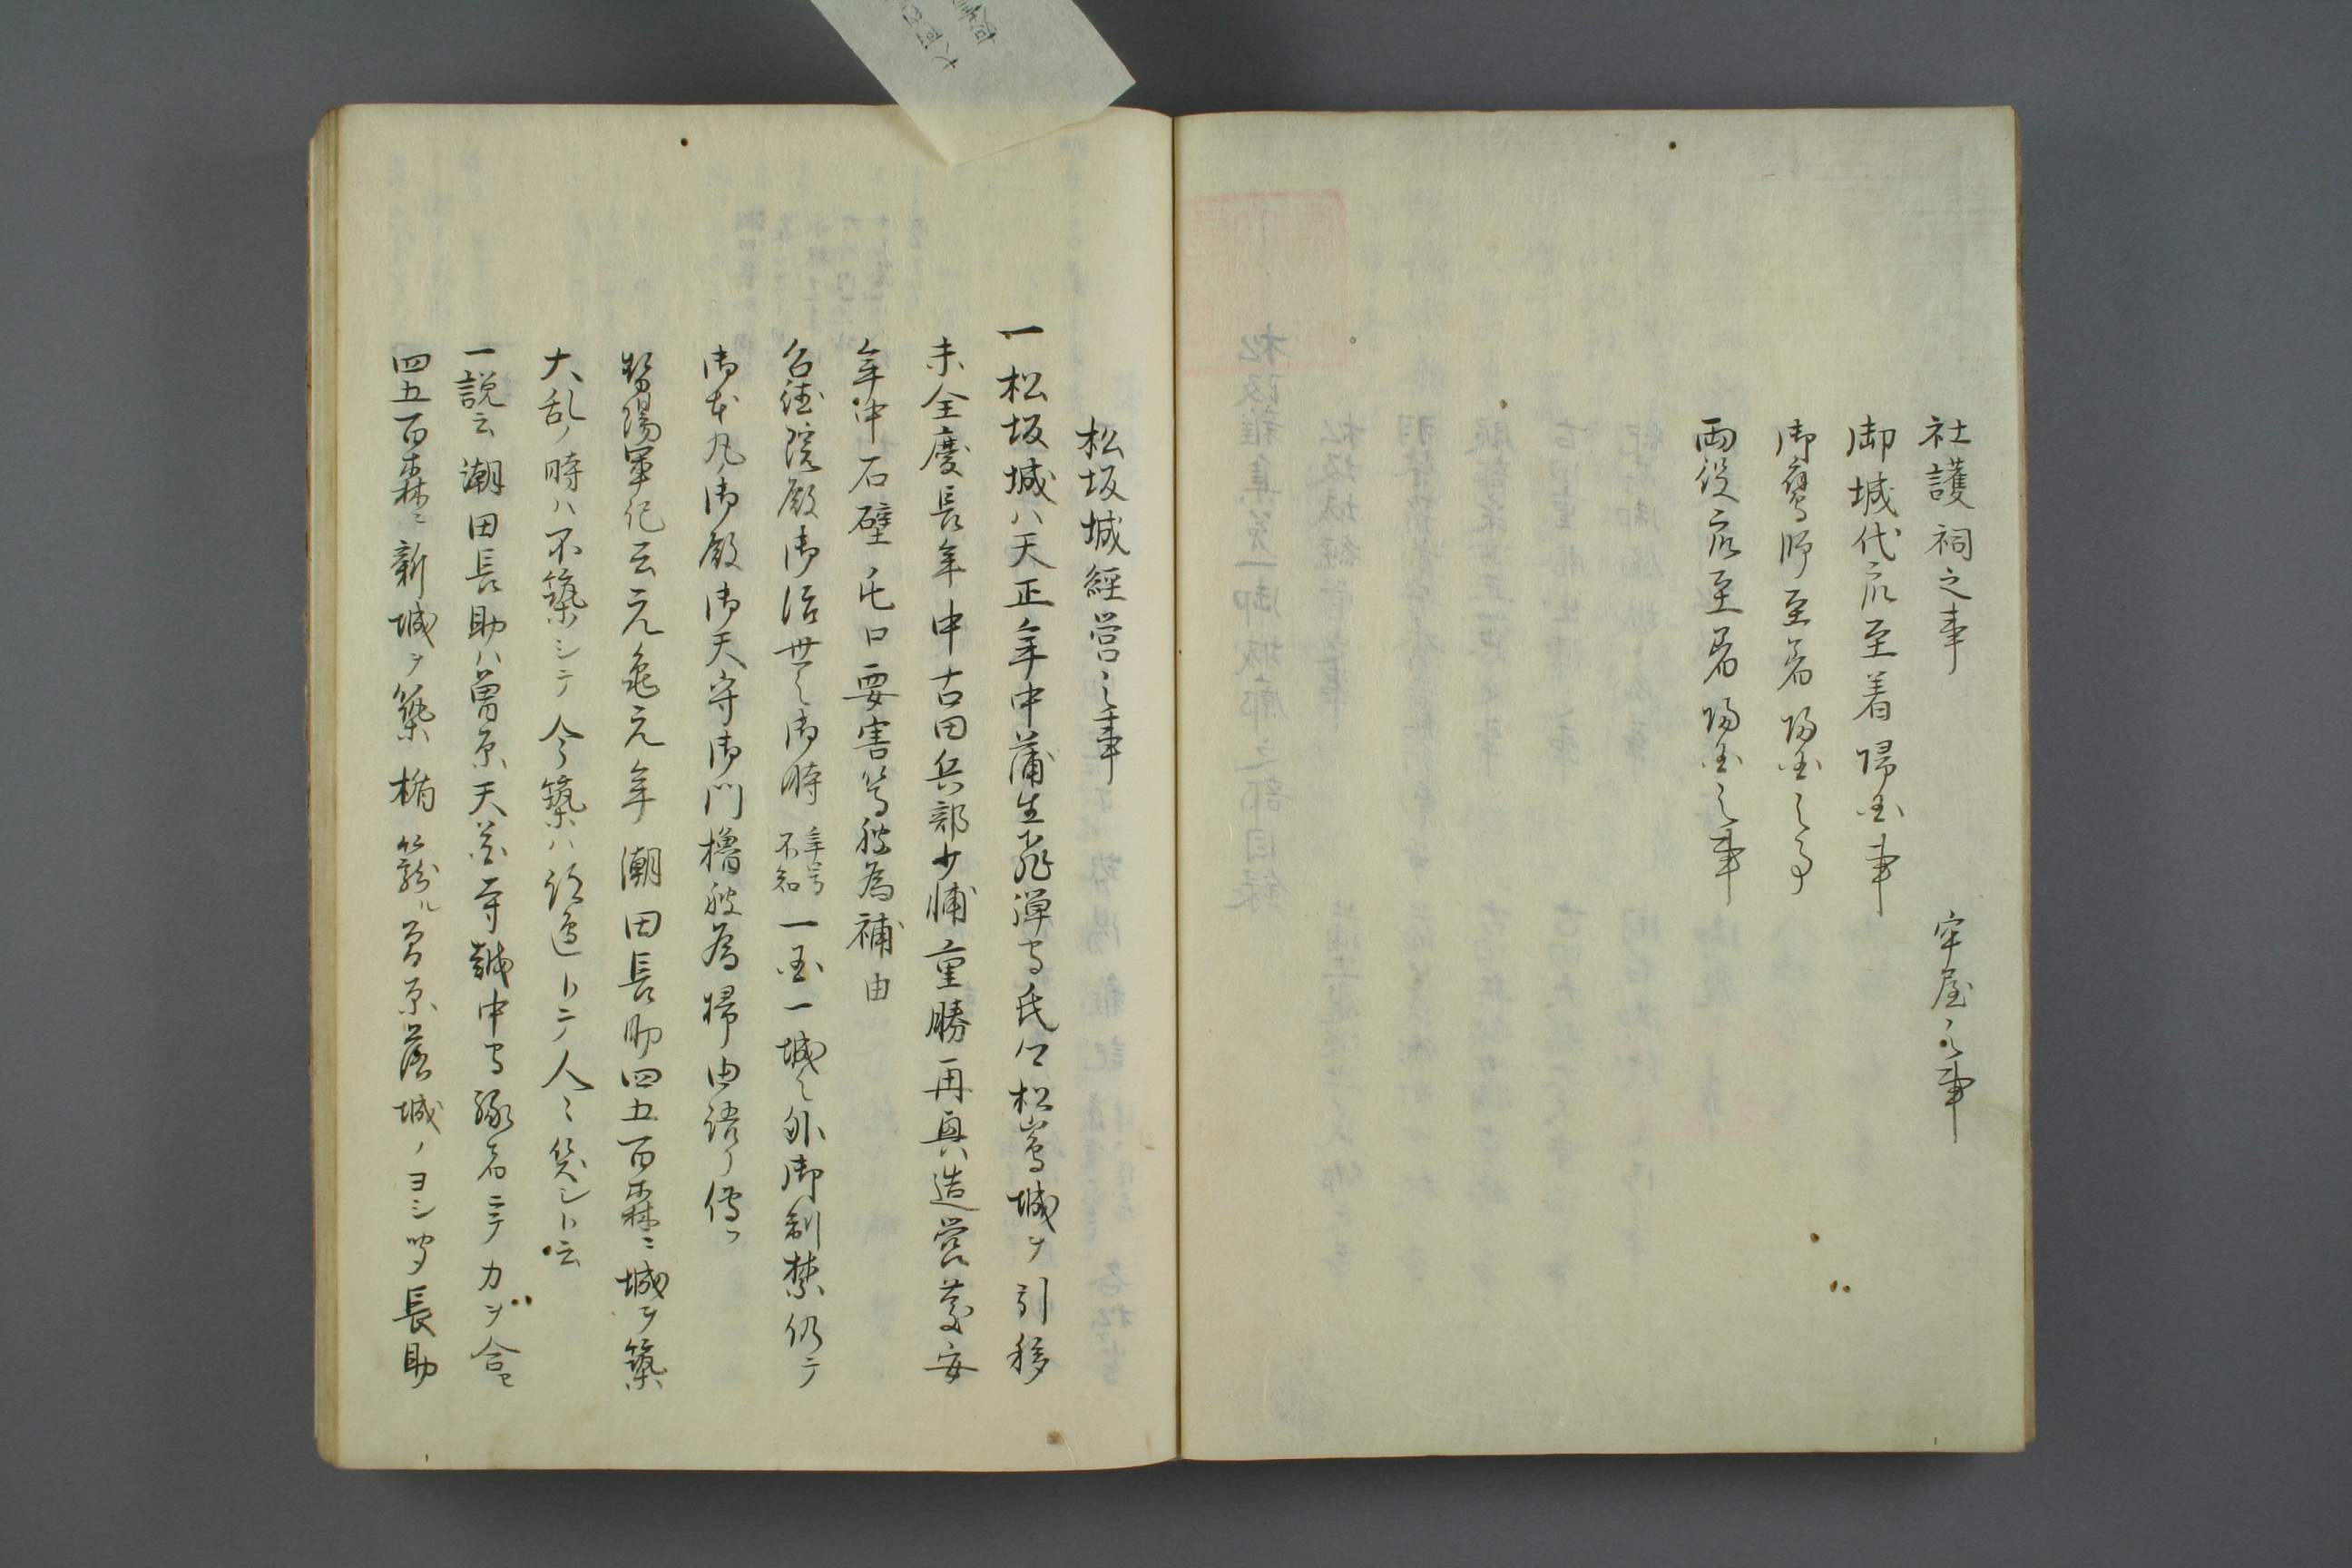 社護祠之事　牢屋之事
御城代衆至着帰国事
御鷹師至着帰国之事
両役衆至着帰国之事
松坂城經営之事
一松坂城ハ天正年中蒲生飛彈守氏公松嶌城ヲ引移
未全慶長年中古田兵部少輔重勝再興造営慶安
年中石壁虎口要害等被為補由
台徳院殿御治世之御時年号不知一国一城之外御制禁仍テ
御本丸御殿御天守御門櫓被為掃由語リ傳フ
勢陽軍記云元亀元年潮田長助四五百森ニ城ヲ築
大乱ノ時ハ不築シテ今築ハ過トテ人ミ笑シト云
一説云潮田長助ハ曽原天花寺城中ヨリ縁者ニテ力ヲ合セ
四五百森ニ新城ヲ築楯籠ル曽原落城ノヨシ聞長助